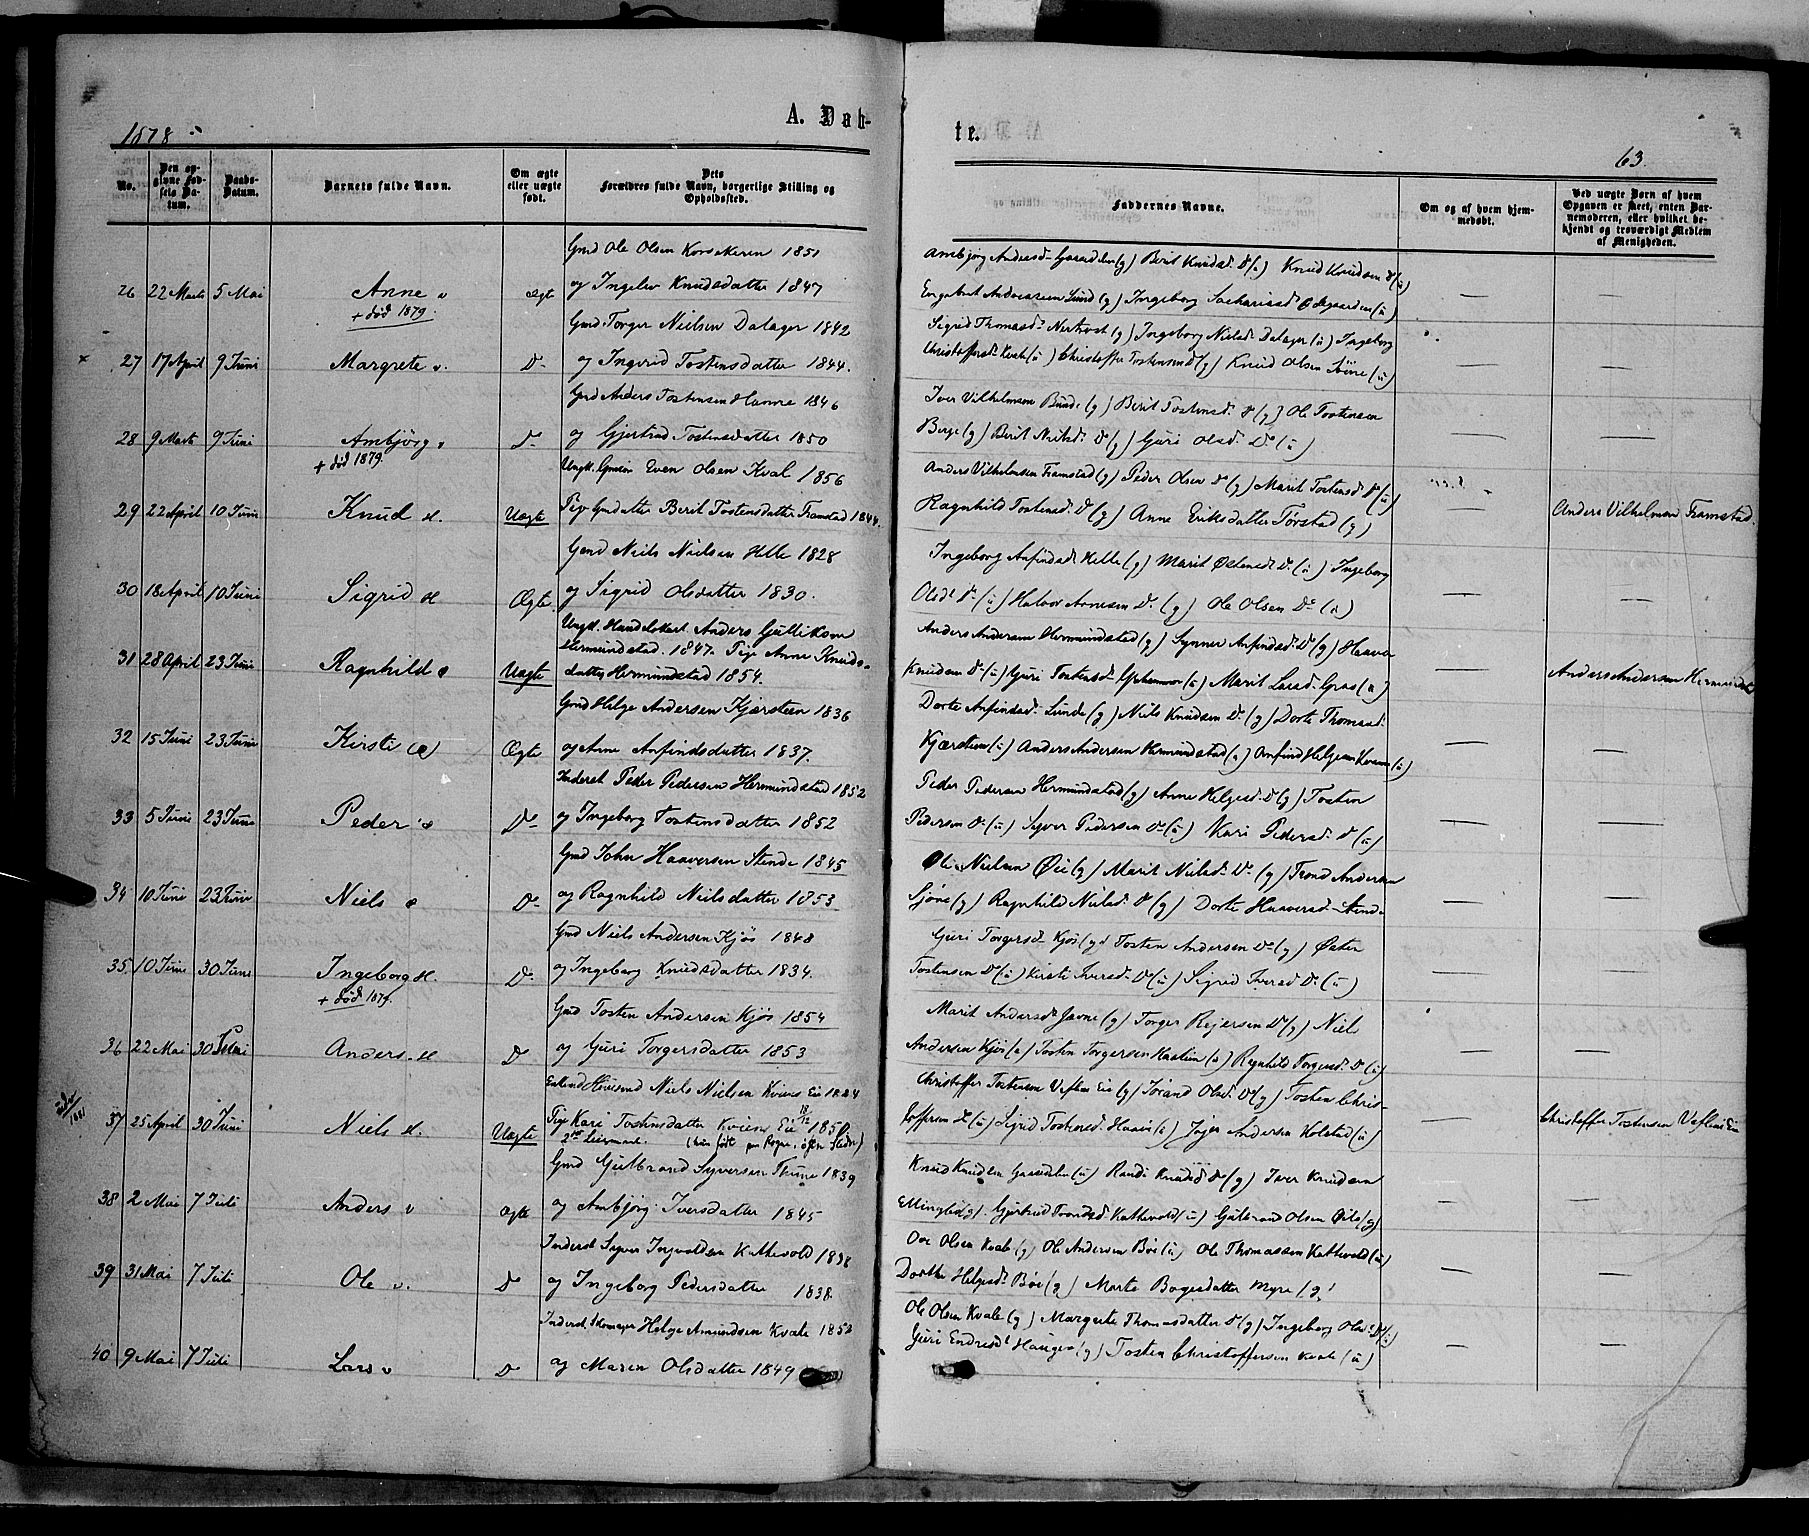 1878.
A. Døb-
te.
63.
No.
Den op-
givne Fød-
sels Da-
tum.
Daabs-
Datum.
Barnets fulde Navn.
Om ægte
eller uægte
født.
Dets
Forældres fulde Navn, borgerlige Stilling og
Opholdssted.
Faddernes Navne.
Om og af hvem hjem-
medøbt.
Ved uægte Børn af hvem
Opgaven er skeet, enten Bar-
nemoderen, eller hvilket be-
kjendt og troværdigt Medlem
af Menigheden.
Gmd Ole Olsen 1851
26 22 Marts 5 Mai Anne v ægte og Ingelev Knudsdatter 1847
+ død 1879.
Ambjørg Andersd. Garadalen (g) Berit Knudsd. D (u) Knud Knudsen D (u)
Engebret Andreasen Lund (g) Ingeborg Sachariasd. Ødegaarden (u)
Gmd. Torger Nielsen Dalager 1842
27 17 April 9 Juni Margrete v. D- og Ingerid Tostensdatter 1844.
Sigrid Thomasd. (g) Ingeborg Nielsd. Dalager (u) Ingeborg
Christoffersd. Kvale (u) Christoffer Tostensen D (g) Knud Olsen (u)
Gmd Anders Tostensen Hamre 1846
28 9 Marts 9 Juni Ambjørg v D- og Gjertrud Tostensdatter 1850
+ død 1879.
Iver Vilhelmsen Bunde (g) Berit Tostensd. D (g) Ole Tostensen
Berge (g) Berit Nielsd. D (g) Guri Olsd. D (u)
Ungk. Even Olsen Kval 1856
29 22 April 10 Juni Knud H. Uægte Pige Gmdatter Berit Tostensdatter Framstad 1844.
Anders Vilhelmsen Framstad (g) Peder Olsen D (g) Marit Tostensd. D (u)
Ragnhild Tostensd. D (g) Anne Eriksdatter Tørstad (g)
Anders Vilhelmsen Framstad.
Gmd Niels Nielsen Helle 1828
30 18 April 10 Juni Sigrid H Ægte og Sigrid Olsdatter 1830.
Ingeborg Anfindsd. Helle (g) Marit Østensd. D. (u) Ingeborg
Olsd. D. (u) Halvor Arnesen D. (g) Ole Olsen D. (u)
Ungk. Handelskart. Anders Gulliksen
Hermundstad. 1847. Pige Anne Knuds-
31 28 April 23 Juni Ragnhild Uægte datter Hermundstad 1854.
Anders Andersen Hermundstad (g) Synnev Anfindsd. D (g) Haavar
Knudsen D (u) Guri Tostensd. (u) Marit Larsd. (u)
Anders Andersen Hermundstad
Gmd Helge Andersen Kjærsteen 1836
32 15 Juni 23 Juni Kirsti Ægte og Anne Anfindsdatter 1837.
Dorte Anfindsd. Lunde (g) Niels Knudsen D. (g) Dorte Thomasd.
Kjærsteen (u) Anders Andersen Hermundstad (u) Anfind Helgesen (u)
Inderst Peder Pedersen Hermundstad 1852
33 5 Juni 23 Juni Peder D- og Ingeborg Tostensdatter 1852
Peder Pedersen Hermundstad (g) Anne Helgesd. D (g) Tosten
Pedersen D. (u) Syver Pedersen D. (u) Kari Pedersd. D (u)
Gmd John Haaversen Stende 1845
34 10 Juni 23 Juni Niels D- og Ragnhild Nielsdatter 1853
Ole Nielsen Øie (g) Marit Nielsd. D. (g) Trond Andersen
Sjøne (g) Ragnhild Nielsd. D (g) Dorte Haaversd. Stende
Gmd Niels Andersen Kjøs 1848
35 10 Juni 30 Juni Ingeborg H. D- og Ingeborg Knudsdatter 1834.
+ død 1879.
Guri Torgersd. Kjøs (g) Tosten Andersen D. (g) Østen
Tostensen D. (u) Kirsti Iversd. D. (u) Sigrid Iversd. D. (u)
Gmd Tosten Andersen Kjøs 1854
36 22 Mai 30 Juni Anders H D og Guri Torgersdatter 1853
Marit Andersd. (g) Torger Reiersen D (g) Niels
Andersen Kjøs (u) Tosten Torgersen (u) Ragnhild Torgersd. D (u)
Niels Nielsen Kviens Eie 1824
37 25 April 30 Juni Niels H. Uægte Pige Kari Tostensdatter Kviens Eie 18/12 1850.
2det Leiermaal.
1881
Christoffer Tostensen Veflens Eie (g) Jørand Olsd. D (g) Tosten Chris-
toffersen D. (u) Sigrid Tostensd. (u) Andersen Kolstad (u)
Christoffer Tostensen Veflens Eie
Gmd Gulbrand Syversen Thune 1839
38 2 Mai 7 Juli Anders v ægte og Ambjørg Iversdatter 1845
Knud Knudsen Garadalen (u) Randi Knudsd. D (g) Iver Knudsen
Ellingbø (g). Gjertrud Trondsd. Kattevold (u) Gulbrand Olsen (g)
Inderst Syver Ingvoldsen Kattevold 1838
39 31 Mai 7 Juli Ole v. D og Ingeborg Pedersdatter 1838.
Ove Olsen Kvale (g) Ole Andersen Bøe (u) Ole Thomassen Kattevold (u)
Dorthe Helgesd. Bøe (g) Marte Bogesdatter Myre (g)
Inderst. Skomager Helge Amundsen Kvale 1852
40 9 Mai 7 Juli Lars v D og Maren Olsdatter 1849
Ole Olsen Kvale (g) Margerte Thomasdatter D (g) Ingeborg Olsd. D (u)
Guri Endresd. Haugen (g) Tosten Christoffersen Kvale (u)